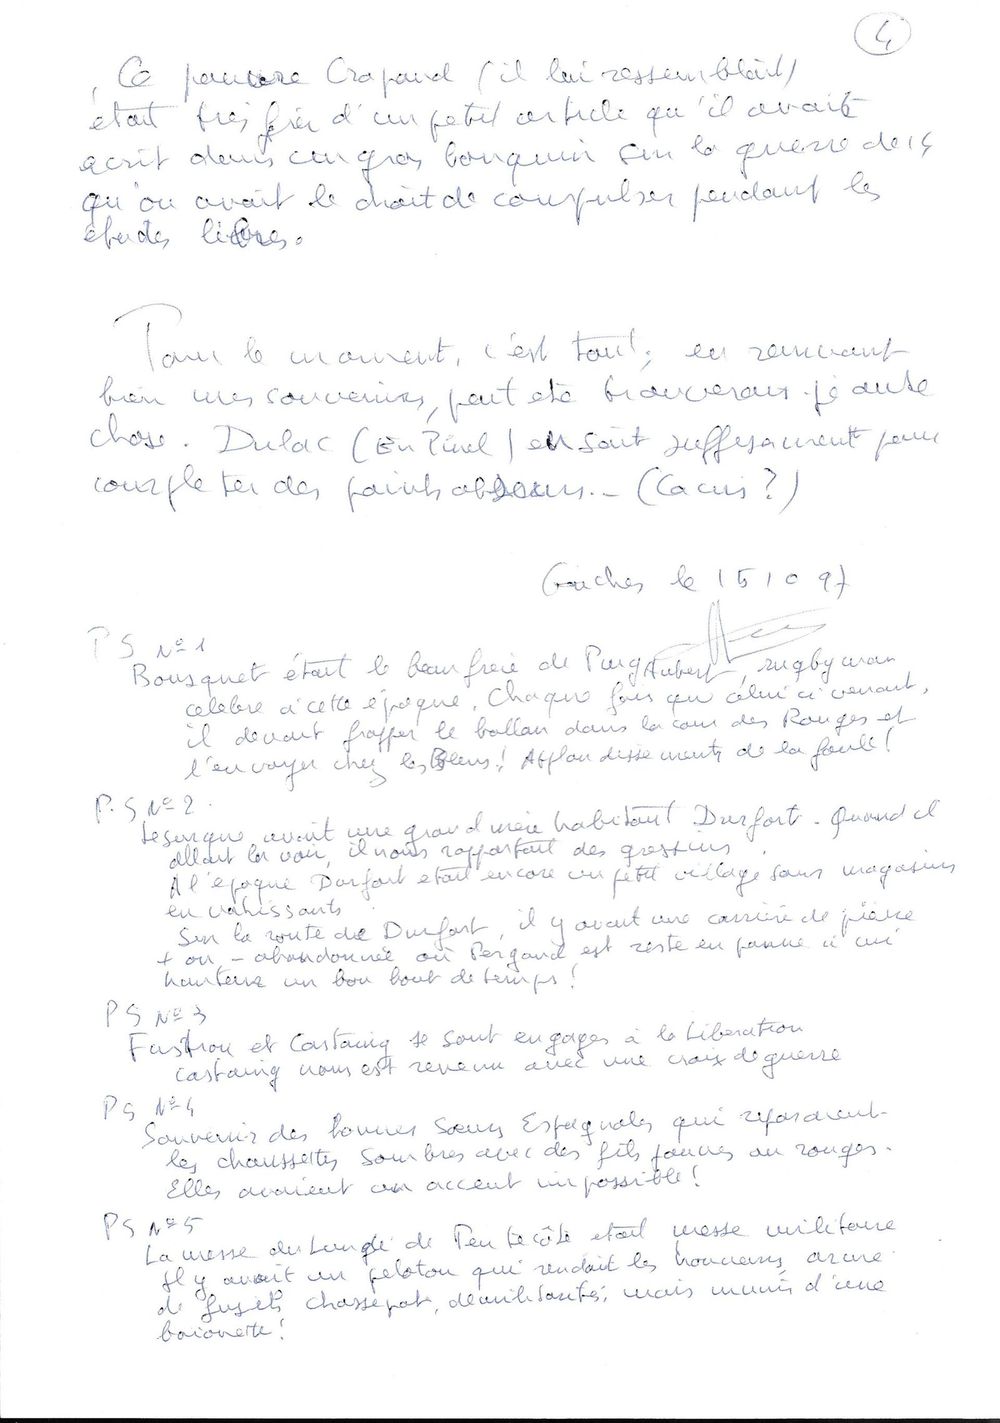 4
Ce pauvre Crapaud (il lui ressemblait)
était très fier d'un petit article qu'il avait
écrit dans un gros bouquin sur la guerre de 14
qu'on avait le droit de compulser pendant les
études libres.
Pour le moment, c'est tout; en remuant
bien mes souvenirs, peut etê trouverais-je autre
chose. Dulac (En Pinel) en sait suffisamment pour
completer des points obscurs. - (Cacus ?)
le 15 10 97
PS N° 1
Bousquet était le beau frère de Puig Aubert, rugbyman
célèbre à cette époque. Chaque fois que celui ci venait,
il devait frapper le ballon dans la cour des Rouges et
l'envoyer chez les Bleus! Applaudissements de la foule!
P.S N° 2.
Lesurque avait une grand mère habitant Durfort. Quand il
allait la voir, il nous rapportait des gressins
A l'époque Durfort était encore un petit village sans magasins
envahissants
Sur la route de Durfort, il y avait une carrière de pierre
+ ou - abandonnée où Pergaud est resté en panne à mi
hauteur un bon bout de temps!
PS N° 3
et Castaing se sont engagés à la Libération
Castaing nous est revenu avec une croix de guerre
PS N° 4
Souvenir des bonnes Sœurs Espagnoles qui reprisaient
les chaussettes sombres avec des fils jaunes ou rouges.
Elles avaient un accent impossible!
PS N° 5
La messe du Lundi de Pentecôte était messe militaire
Il y avait un peloton qui rendait les honneurs, armé
de fusils chassepot, démilitarisés, mais munis d'une
baionette!